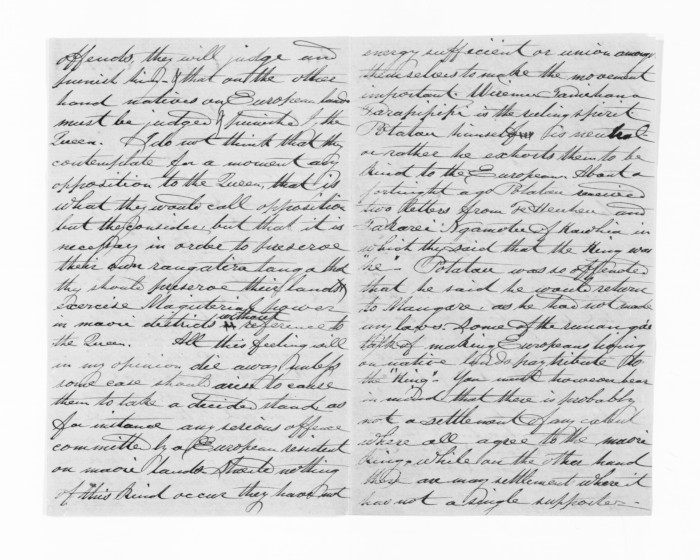 offends, they will judge and
punish him & that on the other
hand natives on European lands
must be judged & punished by the
Queen. I do not think that they
contemplate for a moment any
opposition to the Queen, that is
what they would call opposition
but they consider but that it is
necessary in order to preserve
their own rangatira tanga that
they should preserve their lands &
exercise Magisterial power
in maori districts without reference to
the Queen. All this feeling will
in my opinion die away unless
some case should arise to cause
them to take a decided stand as
for instance any serious offence
committed by a European resident
on maori lands. Should nothing
of this kind occur they have not
energy sufficient or union among
themselves to make the movement
important. Wiremu Tamihana
Tarapipipi is the ruling spirit.
Potatau himself is neutral
or rather he exhorts them to be
kind to the European. About a
fortnight ago Potatau received
two letters from Te Heuheu and
Takarei Ngamotu of Kawhia in
which they said that the King was
"he". Potatau was so offended
that he said he would return
to Mangare as he had not made
any laws. Some of the runangas
talk of making Europeans living
on native lands pay tribute to
the "King". You must however bear
in mind that there is probably
not a settlement of any extent
where all agree to the maori
King, while on the other hand
there are many settlements where it
has not a single supporter.